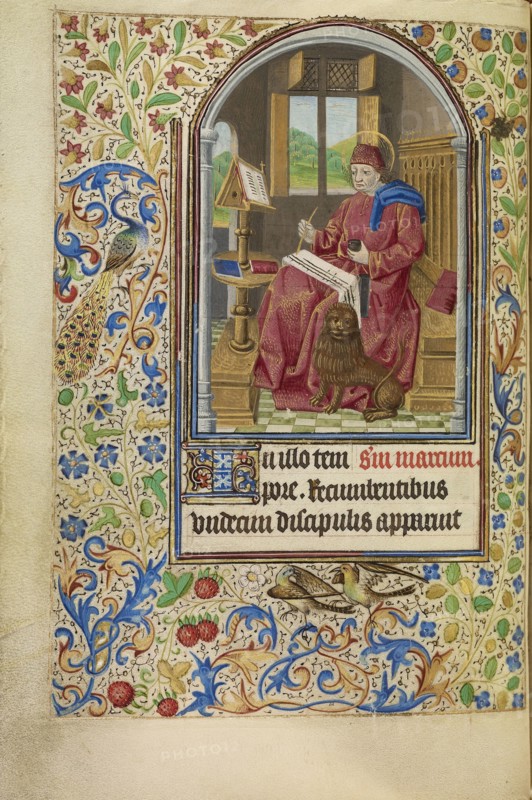 In illo tem Sm marcum.
pore. Recumbentibus
vndecim discipulis apparuit
PHOTO12